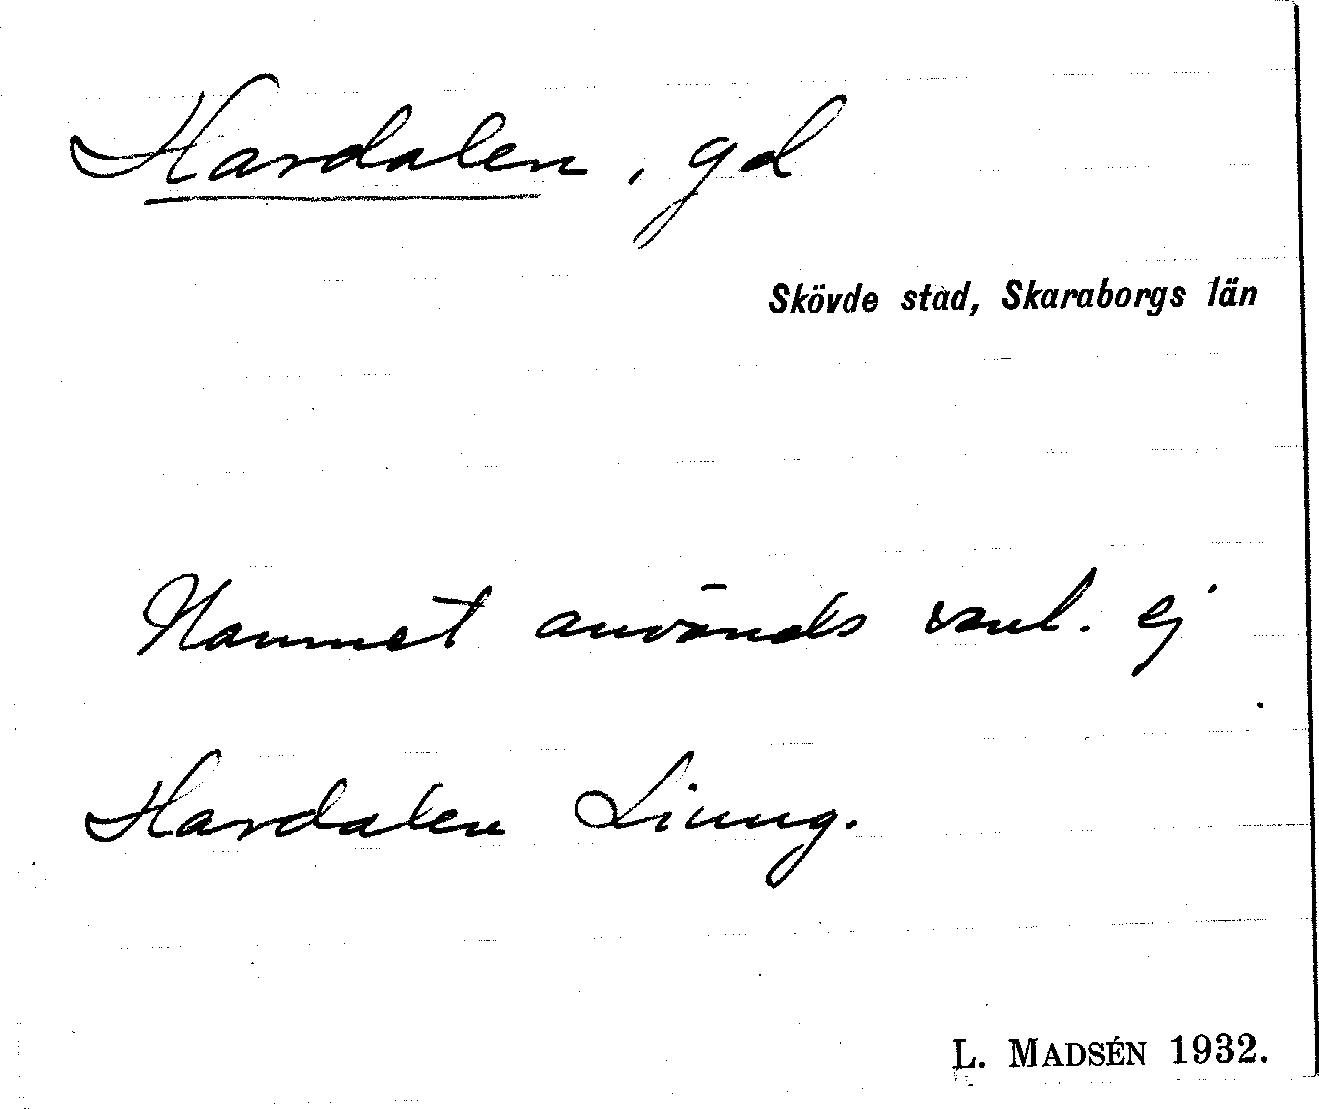 Hardalen, gd
Skövde stad, Skaraborgs län
Namnet används vanl. ej
Hardalen Liung.
L. MADSÉN 1932.